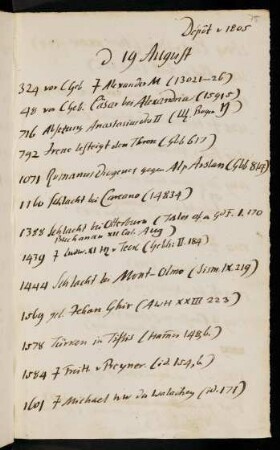 Depôt v 1805
D 19 August
324 vor C Geb. † Alexander M. (13021-26)
48 vor C Geb. Cäsar bei Alexandria (15915)
716 Absetzung Anastasius d II
792 Irene besteigt den Thron (Gbb 617)
1071 Romanus Diogenes gegen Alp Arslan (Gbb 849)
1160 Schlacht bei Carcano (14834)
1388 Schlacht bei Otterburn (Tales of a G.F. I. 170
Buchanan XII Cal. Aug)
1439 † Ludw. XI v Teck (Gebhi II. 184)
1444 Schlacht bei Mont-Olmo (Sism. IX. 219)
1569 geb. Jehan Ghir (AWH XXIII 223)
1578 Türken in Tiflis (Ham 148,6.)
1584 † Freih v Preyner. (id 154,6)
1601 † Michael der Walachey (id. 171)